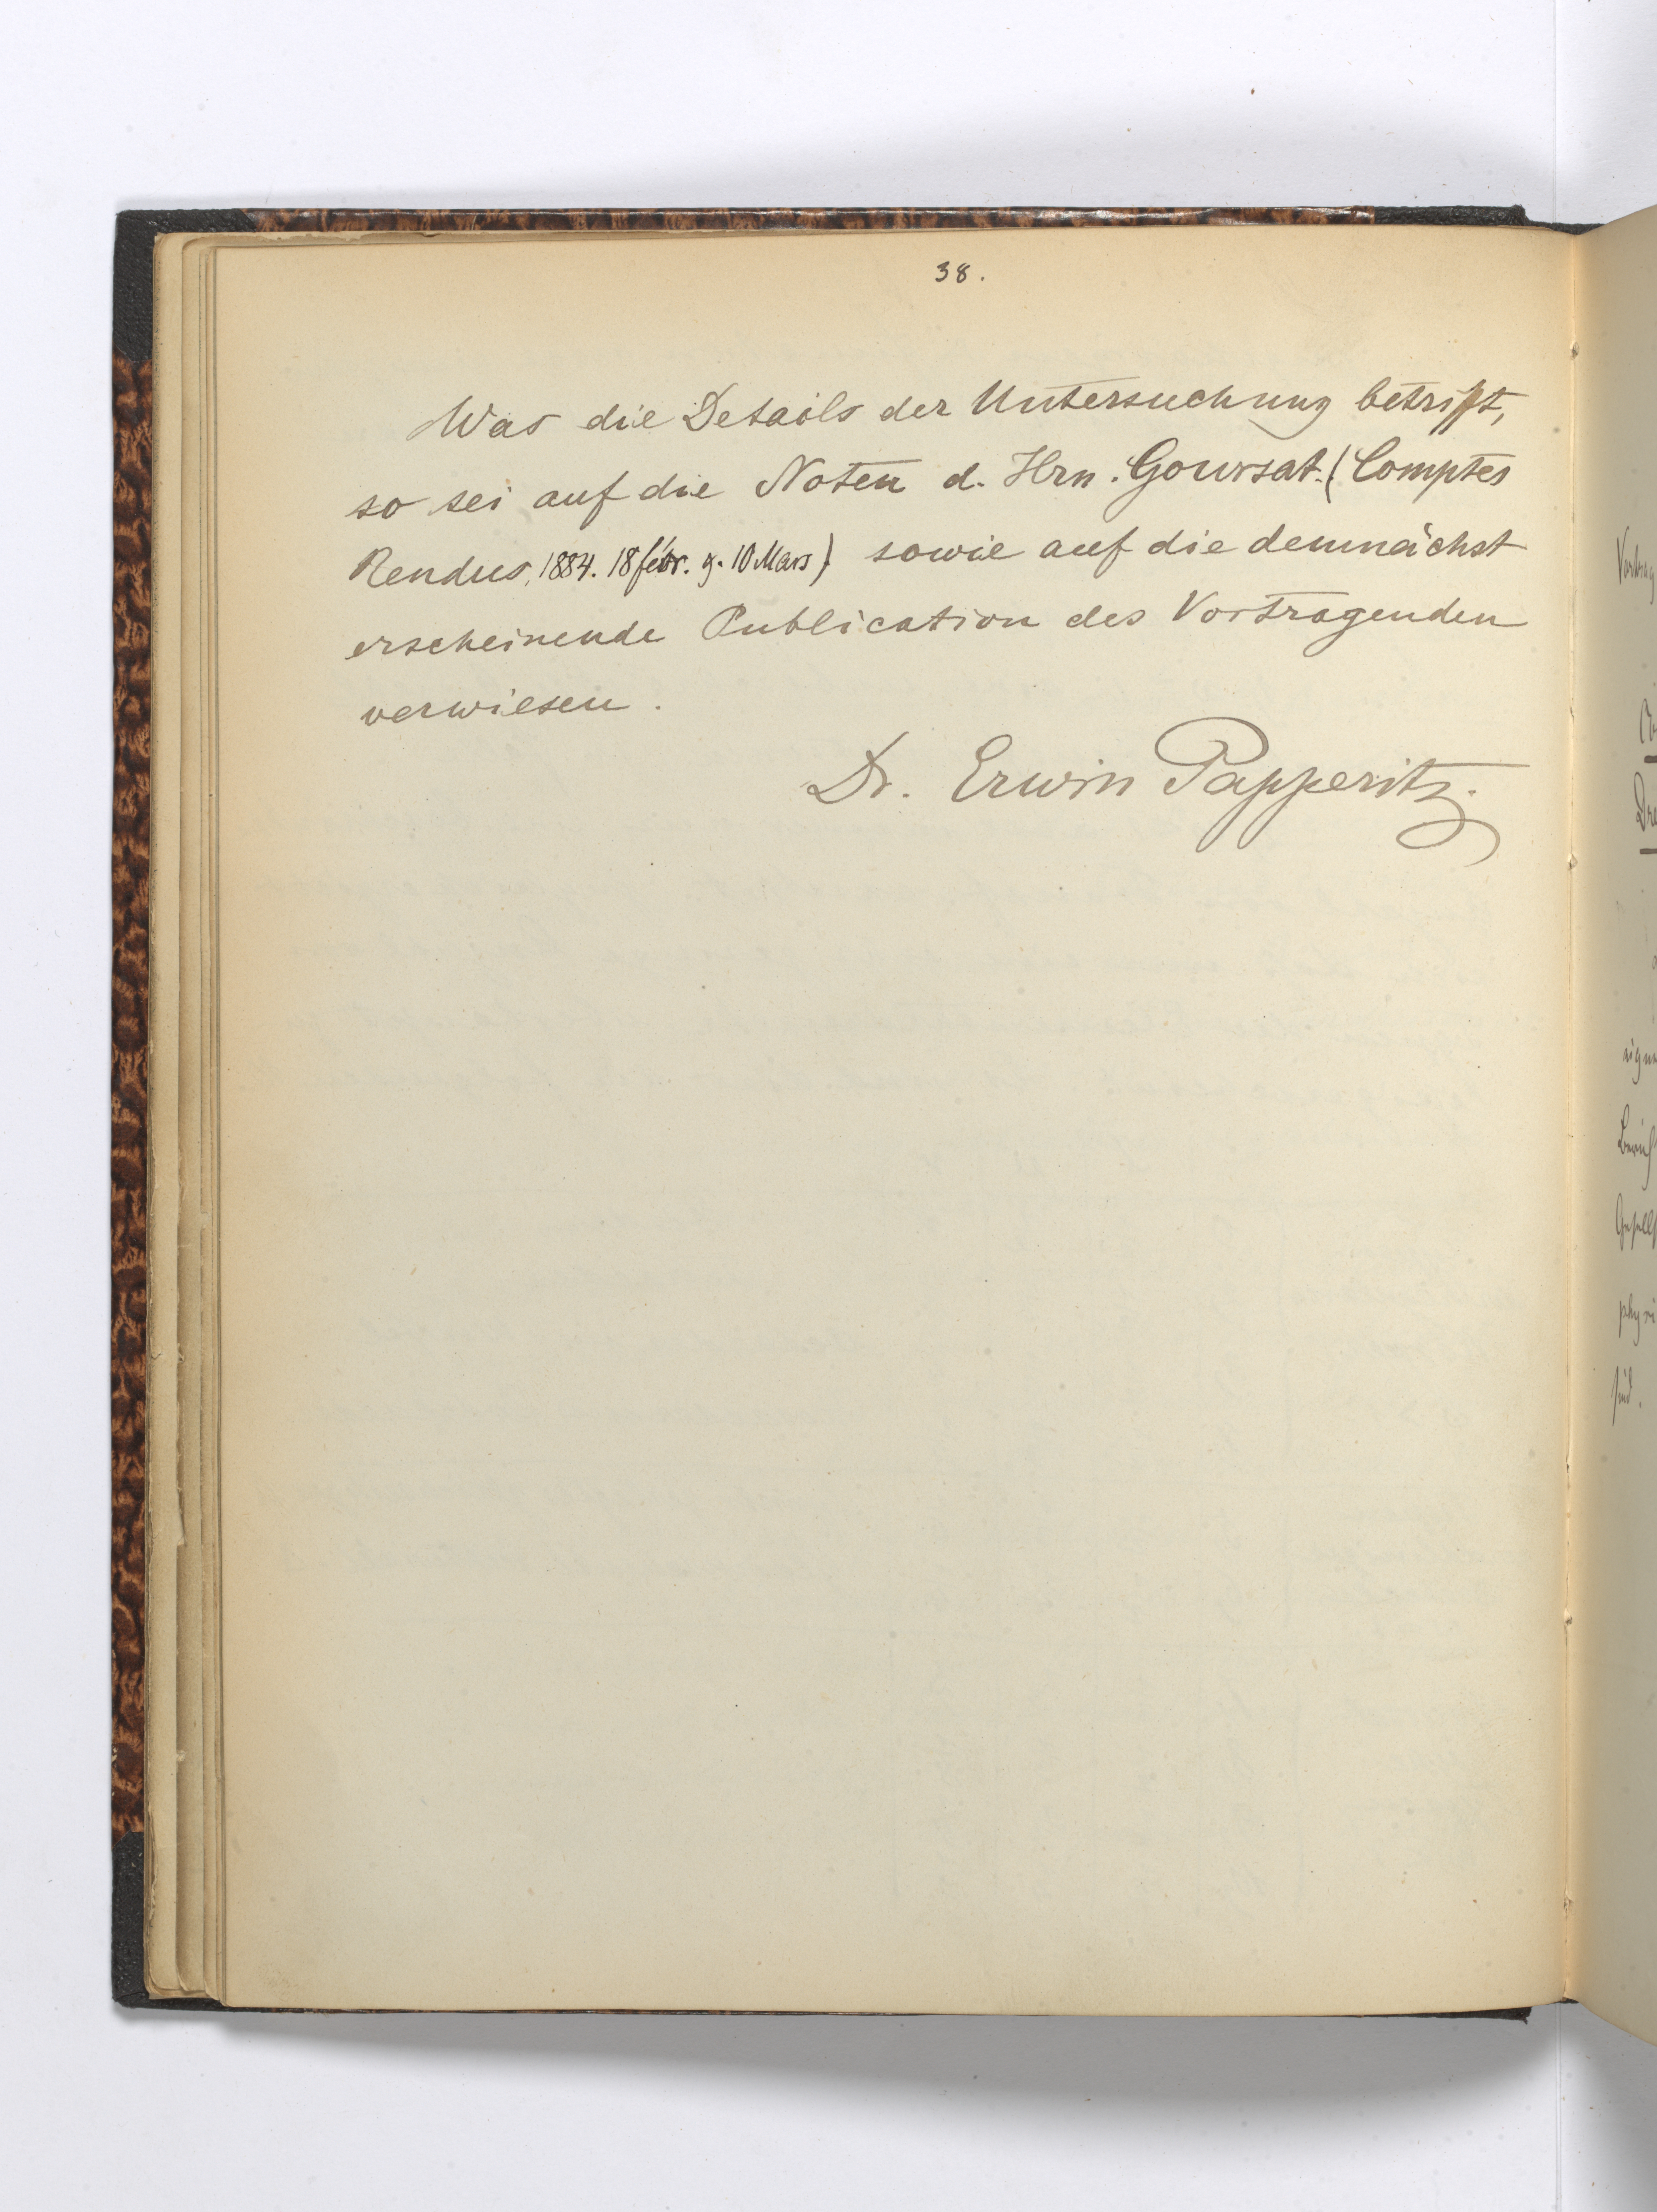 38.
Was die Details der Untersuchung betrifft,
so sei auf die Noten d. Hrn. Goursat. (Comptes
Rendus, 1884. 18 febr. g. 10 Mars) sowie auf die demnächst
erscheinende Publication des Vortragenden
verwiesen.
Dr. Erwin Papperitz.